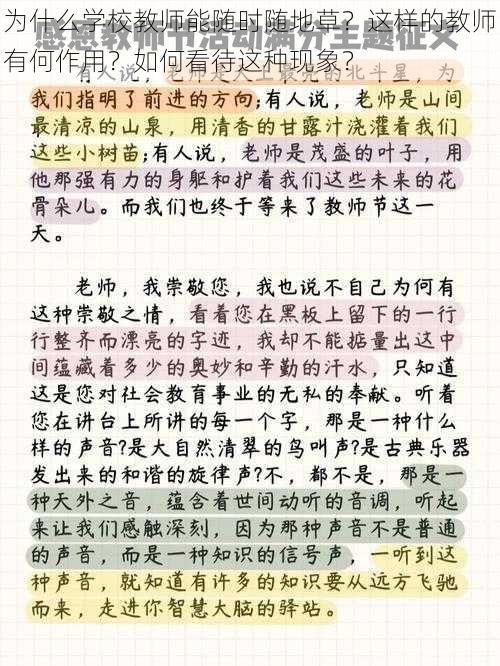 为什么学校教师能随时随地草？这样的教师
有何作用？如何看待这种现象？
感恩教师节活动满分主题征文
有人说，老师是天上最亮的北斗星，为
我们指明了前进的方向;有人说，老师是山间
最清凉的山泉，用清香的甘露汁浇灌着我们
这些小树苗;有人说，老师是茂盛的叶子，用
他那强有力的身躯和护着我们这些未来的花
骨朵儿。而我们也终于等来了教师节这一
天。
老师，我崇敬您，我也说不自己为何有
这种崇敬之情，看着您在黑板上留下的一行
行整齐而漂亮的字迹，我却不能掂量出这中
间蕴藏着多少的奥妙和辛勤的汗水，只知道
这是您对社会教育事业的无私的奉献。听着
您在讲台上所讲的每一个字，那是一种什么
样的声音?是大自然清翠的鸟叫声?是古典乐器
发出来的和谐的旋律声?不，都不是，那是一
种天外之音，蕴含着世间动听的音调，听起
来让我们感触深刻，因为那种声音不是普通
的声音，而是一种知识的信号声，一听到这
种声音，就知道有许多的知识要从远方飞驰
而来，走进你智慧大脑的驿站。